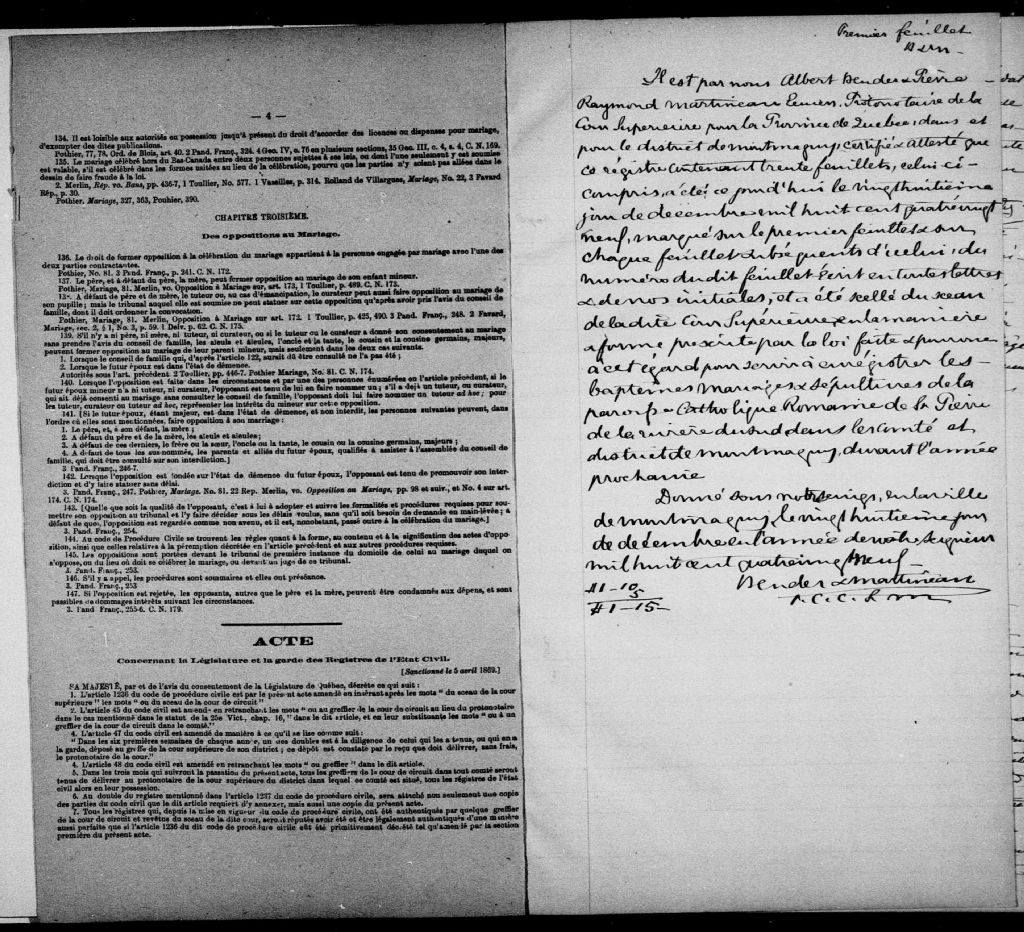 — 4 —
134. Il est loisible aux autorités en possession jusqu'à présent du droit d'accorder des licences ou dispenses pour mariage,
d'exempter des dites publications.
Pothier, 77, 78. Ord. de Blois, art. 40. 2 Pand. Franç., 324. 4 Geo. IV, a. 75 en plusieurs sections, 35 Geo. III. c. 4, s. 4, C. N. 169.
135. Le mariage célébré hors du Bas-Canada entre deux personnes sujettes à ses lois, ou dont l'une seulement y est soumise
est valable, s'il est célébré dans les formes usitées au lieu de la célébration, pourvu que les parties n'y soient pas allées dans le
dessein de faire fraude à la loi.
2. Merlin, Rép. vo. Bans, pp. 436-7, 1 Toullier, No. 577. 1 Vazeilles, p. 314. Rolland de Villargues, Mariage, No. 22, 3 Favard
Rép., p. 30.
Pothier, Mariage, 327, 363, Pouhier, 390.
CHAPITRE TROISIÈME.
Des oppositions au Mariage.
136. Le droit de former opposition à la célébration du mariage appartient à la personne engagée par mariage avec l'une des
deux parties contractantes.
Pothier, No. 81. 3 Pand. Franç., p. 241. C. N. 172.
137. Le père, et à défaut du père, la mère, peut former opposition au mariage de son enfant mineur.
Pothier, Mariage, 81. Merlin, vo. Opposition à Mariage sur, art. 173, 1 Toullier, p. 489. C. N. 173.
138. A défaut de père et de mère, le tuteur ou, au cas d'émancipation, le curateur peut aussi faire opposition au mariage de
son pupille; mais le tribunal auquel elle est soumise ne peut statuer sur cette opposition qu'après avoir pris l'avis du conseil de
famille, dont il doit ordonner la convocation.
Pothier, Mariage, 81. Merlin, Opposition à Mariage sur art. 172. 1 Toullier, p. 425, 490. 3 Pand. Franç., 248. 2 Favard,
Mariage, sec. 2, § 1, No. 3, p. 59. 1 Delv. p. 62. C. N. 175.
139. S'il n'y a ni père, ni mère, ni tuteur, ni curateur, ou si le tuteur ou le curateur a donné son consentement au mariage
sans prendre l'avis du conseil de famille, les aïeuls et aïeules, l'oncle et la tante, le cousin et la cousine germains, majeurs,
peuvent former opposition au mariage de leur parent mineur, mais seulement dans les deux cas suivants.
1. Lorsque le conseil de famille qui, d'après l'article 122, aurait dû être consulté ne l'a pas été;
2. Lorsque le futur époux est dans l'état de démence.
Autorités sous l'art. précédent 2 Toullier, pp. 446-7. Pothier Mariage, No. 81. C. N. 174.
140. Lorsque l'opposition est faite dans les circonstances et par une des personnes énumérées en l'article précédent, si le
futur époux mineur n'a ni tuteur, ni curateur, l'opposant est tenu de lui en faire nommer un; s'il a déjà un tuteur, ou curateur,
qui ait déjà consenti au mariage sans consulter le conseil de famille, l'opposant doit lui faire nommer un tuteur ad hoc; pour
les tuteur, curateur ou tuteur ad hoc, représenter les intérêts du mineur sur cette opposition.
141. [Si le futur époux, étant majeur, est dans l'état de démence, et non interdit, les personnes suivantes peuvent, dans
l'ordre où elles sont mentionnées, faire opposition à son mariage:
1. Le père, et, à son défaut, la mère;
2. A défaut du père et de la mère, les aïeuls et aïeules;
3. A défaut de ces derniers, le frère ou la sœur, l'oncle ou la tante, le cousin ou la cousine germains, majeurs;
4. A défaut de tous les sus-nommés, les parents et alliés du futur époux, qualifiés à assister à l'assemblée du conseil de
famille, qui doit être consulté sur son interdiction.]
3 Pand. Franç., 246-7.
142. Lorsque l'opposition est fondée sur l'état de démence du futur époux, l'opposant est tenu de promouvoir son inter-
diction et d'y faire statuer sans délai.
3. Pand. Franç., 247. Pothier, Mariage. No. 81. 22 Rep. Merlin, vo. Opposition au Mariage, pp. 98 et suiv., et No. 4 sur art.
174. C. N. 174.
143. [Quelle que soit la qualité de l'opposant, c'est à lui à adopter et suivre les formalités et procédures requises pour sou-
mettre son opposition au tribunal et l'y faire décider sans les délais voulus, sans qu'il soit besoin de demande en main-levée; à
défaut de quoi, l'opposition est regardée comme non avenu, et il est, nonobstant, passé outre à la célébration du mariage.]
3. Pand. Franç., 254.
144. Au Code de Procédure Civile se trouvent les règles quant à la forme, au contenu et à la signification des actes d'oppo-
sition, ainsi que celles relatives à la péremption décrétée en l'article précédent et aux autres procédures requises.
145. Les oppositions sont portées devant le tribunal de première instance du domicile de celui au mariage duquel on
s'oppose, ou du lieu où doit se célébrer le mariage, ou devant un juge de ce tribunal.
3. Pand. Franç., 253.
146. S'il y a appel, les procédures sont sommaires et elles ont préséance.
3. Pand. Franç., 253
147. Si l'opposition est rejetée, les opposants, autres que le père et la mère, peuvent être condamnés aux dépens, et sont
passibles de dommages intérêts suivant les circonstances.
3. Pand Franç., 255-6. C. N. 179.
ACTE
Concernant la Législature et la garde des Registres de l'Etat Civil.
[Sanctionné le 5 avril 1869.]
SA MAJESTÉ, par et de l'avis du consentement de la Législature de Québec, décrète ce qui suit:
1. L'article 1236 du code de procédure civile est par le présent acte amendé en insérant après les mots "du sceau de la cour
supérieure" les mots "ou du sceau de la cour de circuit"
2. L'article 45 du code civil est amendé en retranchant les mots "ou au greffier de la cour de circuit au lieu du protonotaire
dans le cas mentionné dans le statut de la 25e Vict., chap. 16," dans le dit article, et en leur substituant les mots "ou à un
greffier de la cour de circuit dans le comté."
4. L'article 47 du code civil est amendé de manière à ce qu'il se lise comme suit:
"Dans les six premières semaines de chaque année, un des doubles est à la diligence de celui qui les a tenus, ou qui en a
la garde, déposé au greffe de la cour supérieure de son district; ce dépôt est constaté par le reçu que doit délivrer, sans frais,
le protonotaire de la cour."
4. L'article 48 du code civil est amendé en retranchant les mots "ou greffier" dans le dit article.
5. Dans les trois mois qui suivront la passation du présent acte, tous les greffiers de la cour de circuit dans tout comté seront
tenus de délivrer au protonotaire de la cour supérieure du district dans lequel se comté est situé, tous les régistres de l'état
civil alors en leur possession.
6. Au double du registre mentionné dans l'article 1237 du code de procédure civile, sera attaché non seulement une copie
des parties du code civil que le dit article requiert d'y annexer, mais aussi une copie du présent acte.
7. Tous les régistres qui, depuis la mise en vigueur du code de procédure civile, ont été authentiqués par quelque greffier
de la cour de circuit et revêtus du sceau de la dite cour, seront réputés avoir été et être légalement authentiqués d'une manière
aussi parfaite que si l'article 1236 du dit code de procédure civile eût été primitivement décrété tel qu'amendé par la section
première du présent acte.
Premier feuillet
Il est par nous Albert Bender & Pierre
Raymond Martineau Ecuiers, Protonotaire de la
Cour Superieure pour la Province de Quebec, dans et
pour le district de montmagny certifié & attesté que
ce régistre contenant trente feuillets, celui-ci
compris, a été ce jourd'hui le vingt huitieme
jour de décembre mil huit cent quatre vingt
neuf, marqué sur le premier feuillet & sur
chaque feuillet subséquents d'icelui, du
numéro du dit feuillet écrit en toutes lettres
& de nos initiales, et a été scellé du sceau
de la dite Cour Supérieure, en la manière
& forme préscrite par la loi faite & pourvue
à cet égard pour servir à enrégistrer les
baptêmes mariages & sépultures de la
paroisse Catholique Romaine de St Pierre
de la rivière du sud dans les comté et
district de montmagny, durant l'année
prochaine
Donné sous nos seings, en la ville
de montmagny, le vingt huitieme jour
de décembre en l'année de notre seigneur
mil huit cent quatre vingt neuf —
Bender & Martineau
P. C. C. S. M
$1-10
5
$1-15-